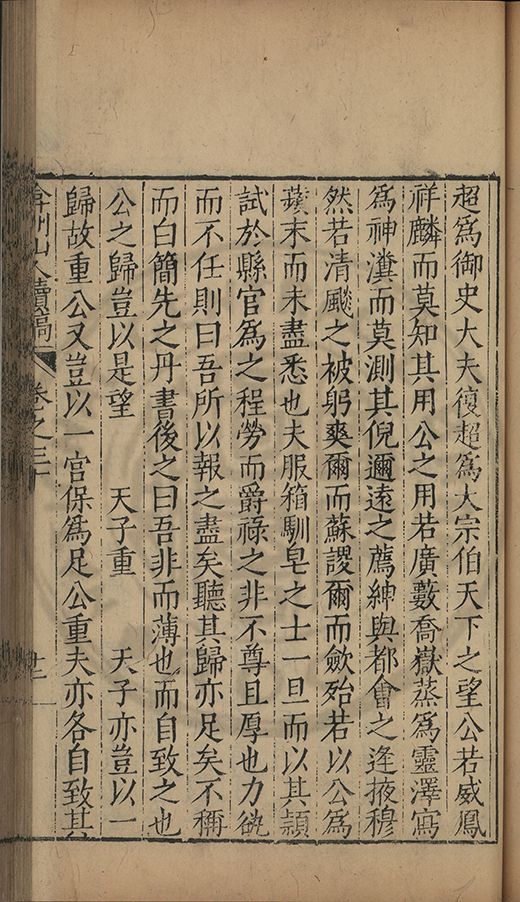 超爲御史大夫復超爲大宗伯天下之望公若威鳳
祥麟而莫知其用公之用若廣藪喬嶽蒸爲靈澤寫
爲神瀵而莫測其倪邇遠之薦紳與都會之逢掖穆
然若清飈之被躬爽爾而蘇謖爾而歛殆若以公爲
蘋末而未盡悉也夫服箱馴皂之士一旦而以其頴
試於縣官爲之程勞而爵祿之非不尊且厚也力
而不任則曰吾所以報之盡矣聽其歸亦足矣不稱
而白簡先之丹書後之曰吾非而薄也而自致之也
公之歸豈以是望 天子重 天子亦豈以一
歸故重公又豈以一宮保爲足公重夫亦各自致其
弇州山人續稿 卷之三十